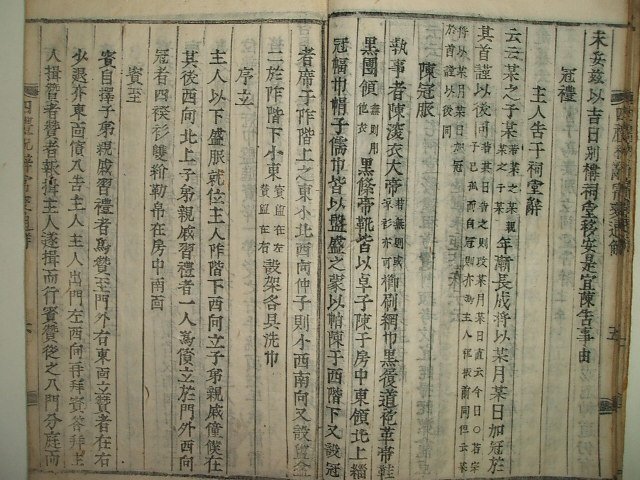 未妥玆以吉日別構祠堂移安是宜陳告事由
冠禮
主人告于祠堂辭
云云某之子某若某之某親某之子某年漸長成將以某月某日加冠於
其首謹以後同
陳冠服
執事者陳深衣大帶
黑團領黑絛帶靴皆以卓子陳于房中東領北上緇
冠幅巾帽子儒巾皆以盤盛之蒙以帕陳于西階下又設冠
者席于阼階上之東小北西向仲子則小西南向又設盥盆
二於阼階下小東賓盥在左贊盥在右設架各具洗巾
序立
主人以下盛服就位主人阼階下西向立子弟親戚僮僕在
其後西向北上子弟親戚習禮者一人爲儐立於門外西向
冠者四䙆衫雙紒勒帛在房中南面
賓至
賓自擇子弟親戚習禮者爲贊至門外右東面立贊者在右
少退亦東面儐入告主人主人出門左西向拜賓答拜主
人揖贊者贊者報揖主人遂揖而行賓贊後之入門分庭而